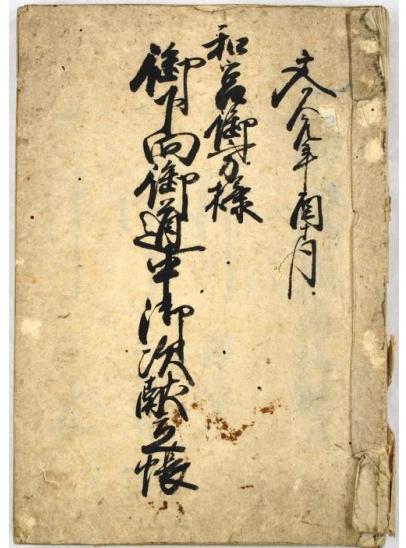 文久元年酉十月
和宮御方様
御下向御道中御次献立帳